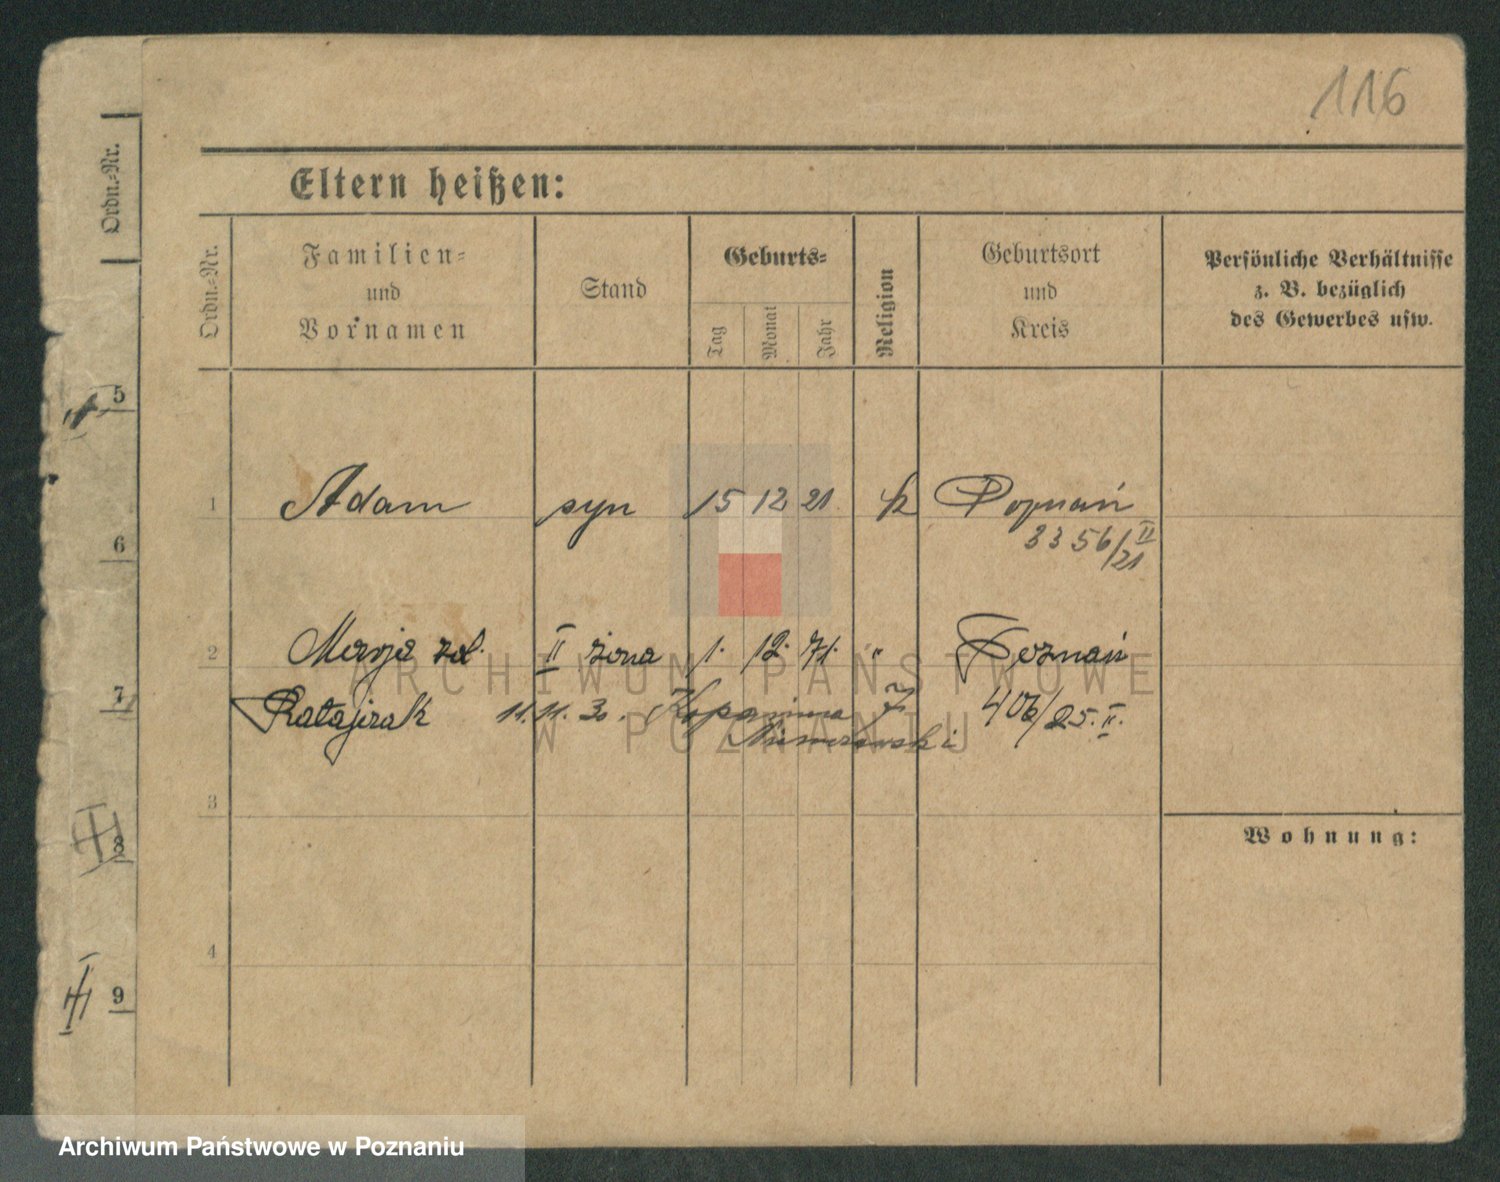 116
Ordn.-Nr.
Eltern heißen:
Ordn.-Nr.
Familien-
und
Vornamen
Stand
Geburts-
Tag
Monat
Jahr
Religion
Geburtsort
und
Kreis
Persönliche Verhältnisse
z. B. bezüglich
des Gewerbes usw.
5
1 Adam syn 15 12 21 k Poznań
3356/II
21
6
2 Marja zd. II żona 1. 12. 71. " Poznań
Ratajczak 11.11.30. 406/25.II.
7
3
8
Wohnung:
4
9
ARCHIWUM PAŃSTWOWE
W POZNANIU
Archiwum Państwowe w Poznaniu